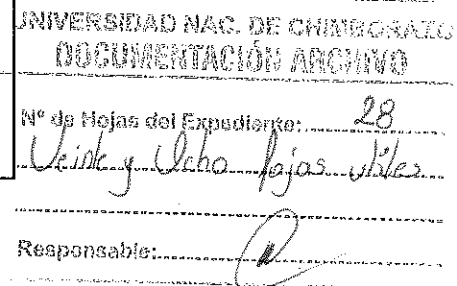 UNIVERSIDAD NAC. DE CHIMBORAZO
DOCUMENTACIÓN ARCHIVO
Nº de Hojas del Expediente: 28
Veinte y Ocho fojas utiles
Responsable: